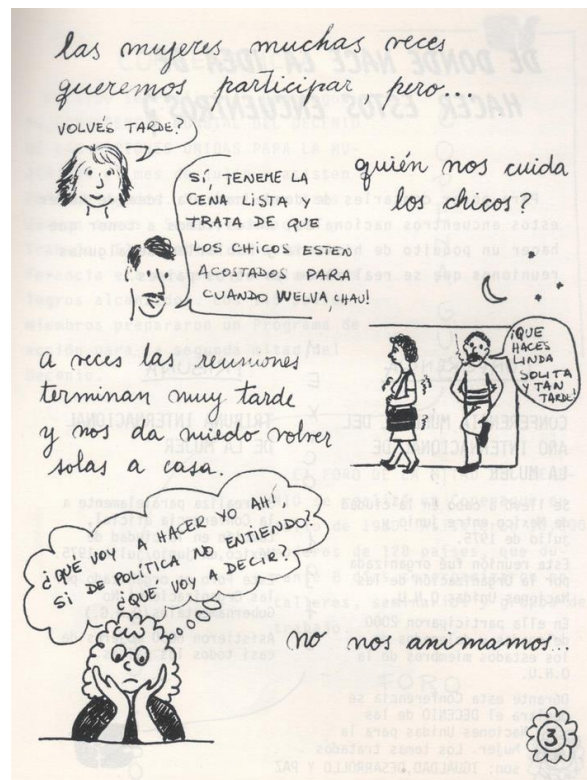 las mujeres muchas veces
queremos participar, pero...
VOLVÉS TARDE?
SÍ, TENEME LA
CENA LISTA Y
TRATA DE QUE
LOS CHICOS ESTEN
ACOSTADOS PARA
CUANDO VUELVA, CHAU!
quién nos cuida
los chicos?
¡QUE
HACES
LINDA
SOLITA
Y TAN
TARDE!
a veces las reuniones
terminan muy tarde
y nos da miedo volver
solas a casa.
¿QUE VOY A HACER YO AHÍ,
SI DE POLÍTICA NO ENTIENDO?
¿QUE VOY A DECIR?
no nos animamos...
3